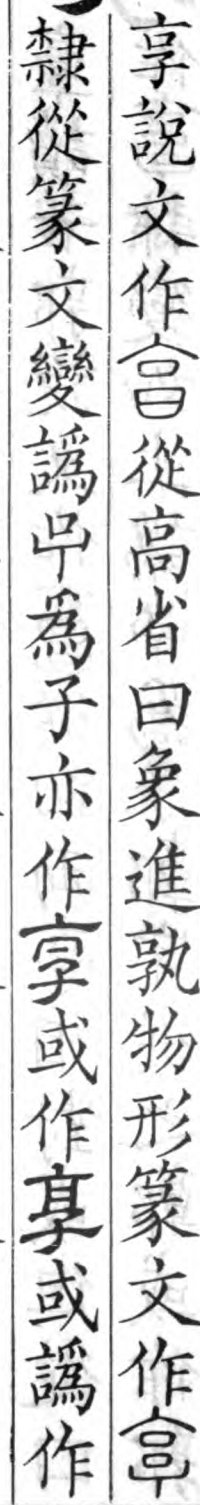 享說文作亯從高省曰象進孰物形篆文作𠅠
隸從篆文變譌𠮛為子亦作享或作享或譌作